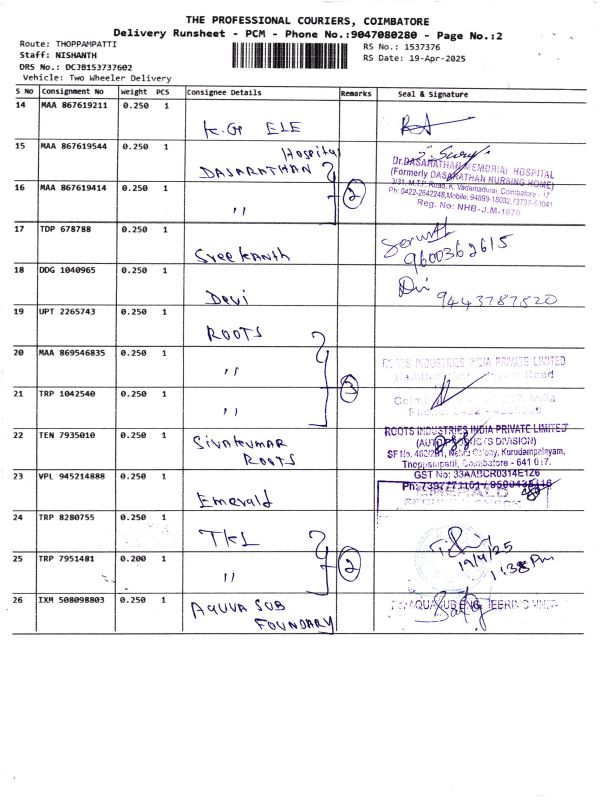 THE PROFESSIONAL COURIERS, COIMBATORE
Delivery Runsheet - PCM - Phone No.:9047080280 - Page No.:2
Route: THOPPAMPATTI
Staff: NISHANTH
DRS No.: DCJB153737602
Vehicle: Two Wheeler Delivery
RS No.: 1537376
RS Date: 19-Apr-2025
S No Consignment No Weight PCS Consignee Details Remarks Seal & Signature
14 MAA 867619211 0.250 1
K.G ELE
15 MAA 867619544 0.250 1
Hospital
DASARATHAN
Dr.DASARATHAN MEMORIAL HOSPITAL
(Formerly DASARATHAN NURSING HOME)
3/31, M.T.P. Road, K. Vadamadurai, Coimbatore - 17.
Ph: 0422-2642248, Mobile: 94899-18032,
Reg. No: NHB-J.M-1670
16 MAA 867619414 0.250 1
,, 2
17 TDP 678788 0.250 1
Sreekanth
9600362615
18 DDG 1040965 0.250 1
Devi
9443787820
19 UPT 2265743 0.250 1
ROOTS
20 MAA 869546835 0.250 1
,,
ROOTS INDUSTRIES INDIA PRIVATE LIMITED
Road
21 TRP 1042540 0.250 1
,, 3
India
22 TEN 7935010 0.250 1
Sivakumar
ROOTS
ROOTS INDUSTRIES INDIA PRIVATE LIMITED
DIVISION)
SF No. Colony, Kurudampalayam,
Thoppampatti, Coimbatore - 641 017.
GST No: 33AABCR0314E1Z6
23 VPL 945214888 0.250 1
Emerald
EMERALD
24 TRP 8280755 0.250 1
TKL
19/4/25
1:38 Pm
25 TRP 7951481 0.200 1
,, 2
26 IXM 508098803 0.250 1
AQUVA SUB
FOUNDARY